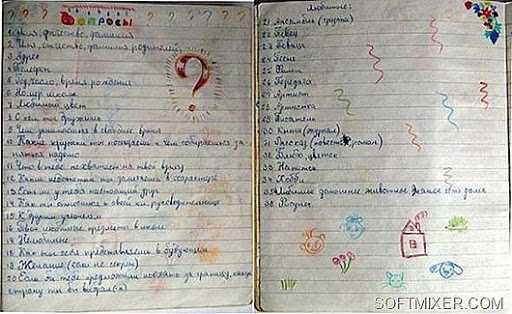 Вопросы
1 Имя, фамилия
2 Имя, отчество, фамилия родителей
3 Адрес
4 Телефон
5 число, время рождения
6 Номер школы
7 Любимый цвет
8 С кем ты дружишь
9 Чем занимаешься в свободное время
10 Какие кружки ты посещаешь и чем собираешься за-
няться
11 Что в тебе на твой взгляд
12 Какие недостатки ты замечаешь в характере
13 Есть ли у тебя настоящий друг
14 Как ты относишься к своей кл. руководительнице
15 К другим учителям
16 Твои любимые предметы в школе
17 Нелюбимые
18 Как ты себя представляешь в будущем
19 Желание (если не секрет)
20 Если бы тебе предложили поехать за границу, какую
страну ты бы выбрал(а)
Любимые:
21 (группа)
22 Певец
23 Певица
24 Песня
25 Фильм
26 Передача
27 Артист
28 Артистка
29 Писатель
30 Книга (журнал)
31 Рассказ (повесть, роман)
32 Блюдо, цветок
33 Напиток
34
35 Любимое домашнее животное
36
SOFTMIXER.COM